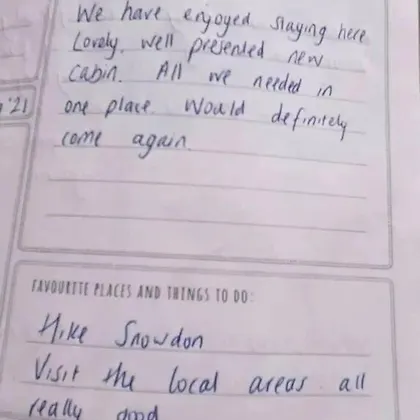 We have enjoyed staying here
Lovely. well presented new
cabin. All we needed in
'21
one place. Would definitely
come again.
FAVOURITE PLACES AND THINGS TO DO:
Hike Snowdon
Visit the local areas all
really good